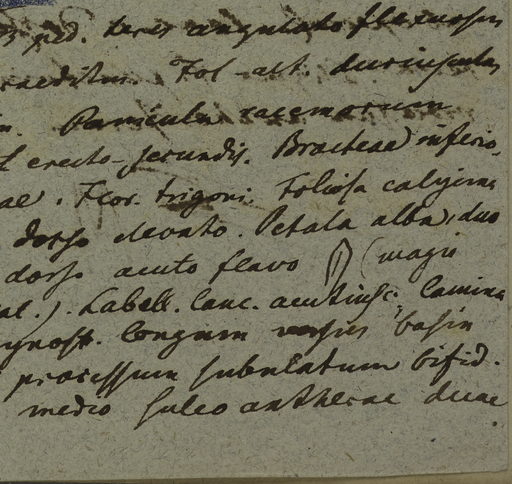 ped. teres angulato flexuosus
raeditus. Fol. alt. duriuscula,
Panicula racemorum
erecto-secundis. Bracteae inferio-
ae. Flor. trigoni. Foliosa calycina
dorso elevato. Petala alba, duo
dorso acuto flavo (magis
cal.). Labell. lanc. acutiusc. Lamina
gynost. longum versus basin
processum subulatum bifid.
medio sulco antherae duae